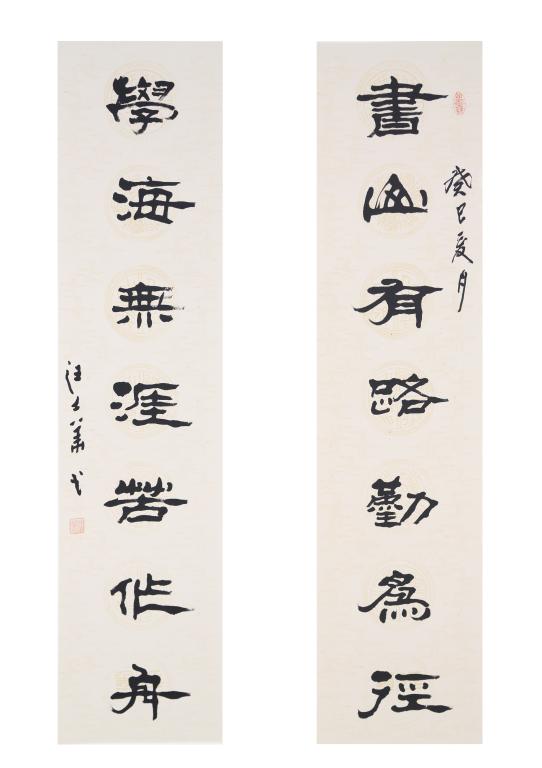 書山有路勤為徑
癸巳夏月
學海無涯苦作舟